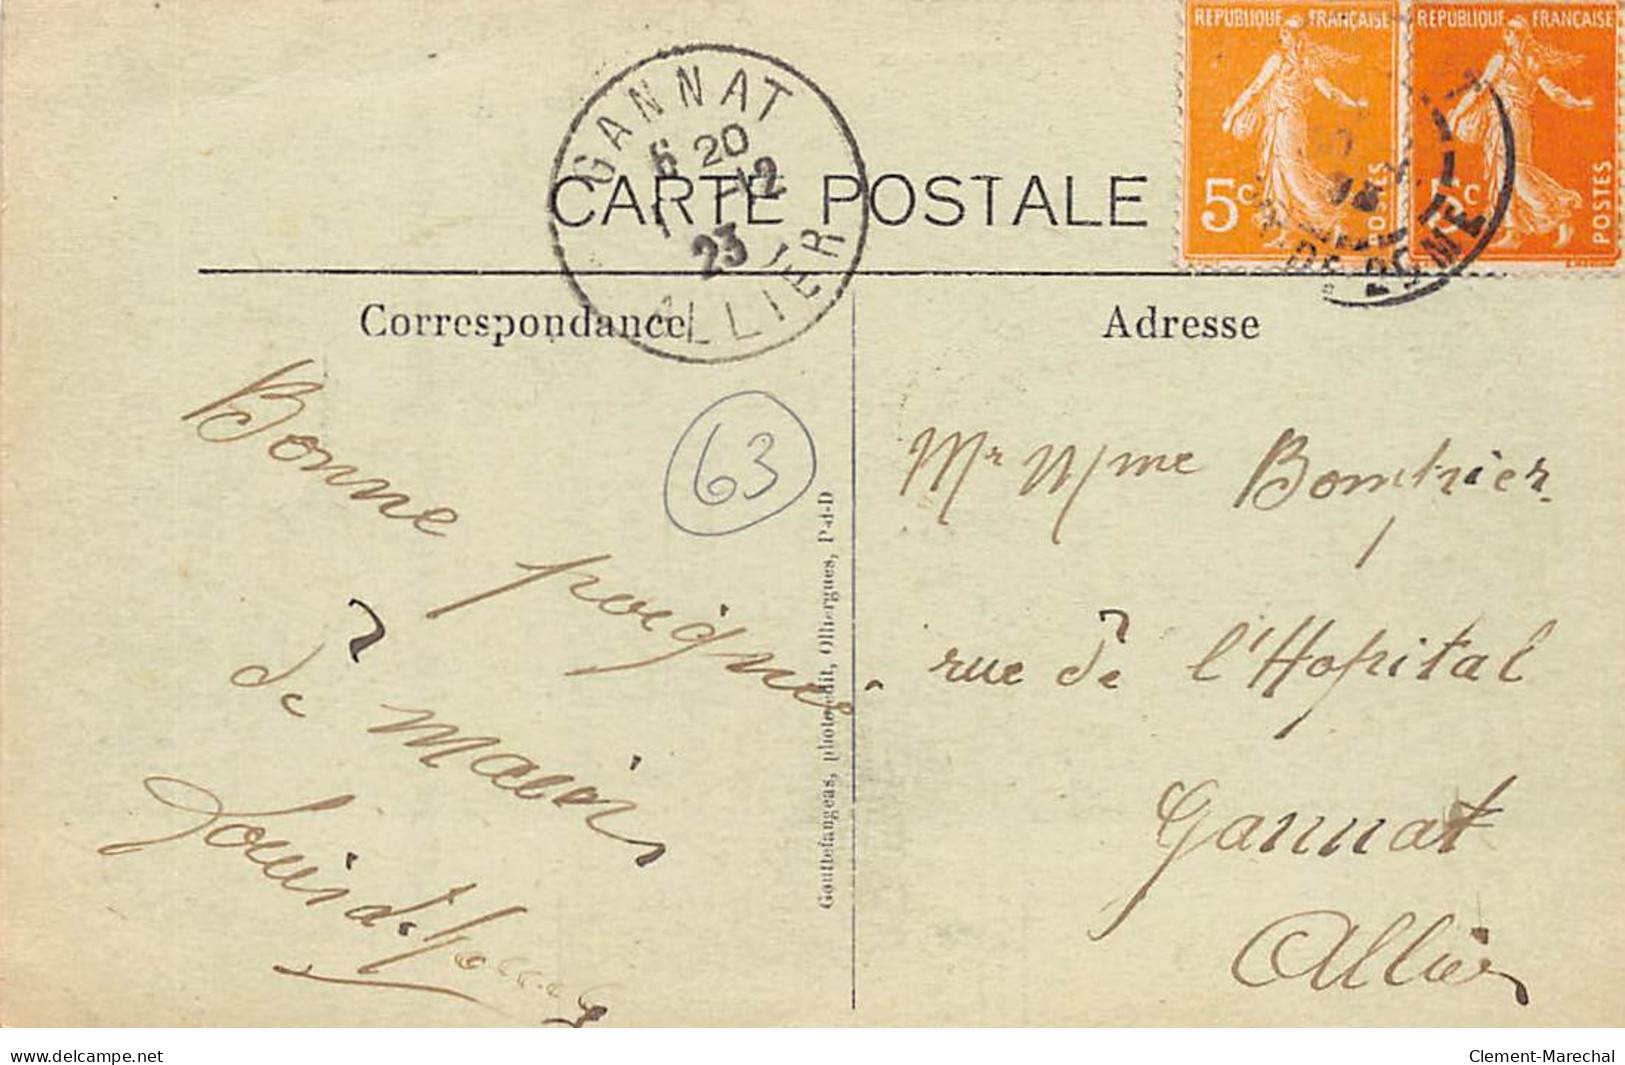 REPUBLIQUE FRANÇAISE
5c POSTES
REPUBLIQUE FRANÇAISE
5c POSTES
GANNAT
6 20
1 -12
23
ALLIER
DE DOME
CARTE POSTALE
Correspondance
Adresse
Bonne poignée
de main
Louis
63
Gouttefangeas, photo-édit, Olliergues, P-d-D
Mr Mme Bomphier
rue de l'Hopital
Gannat
Allier
www.delcampe.net
Clement-Marechal